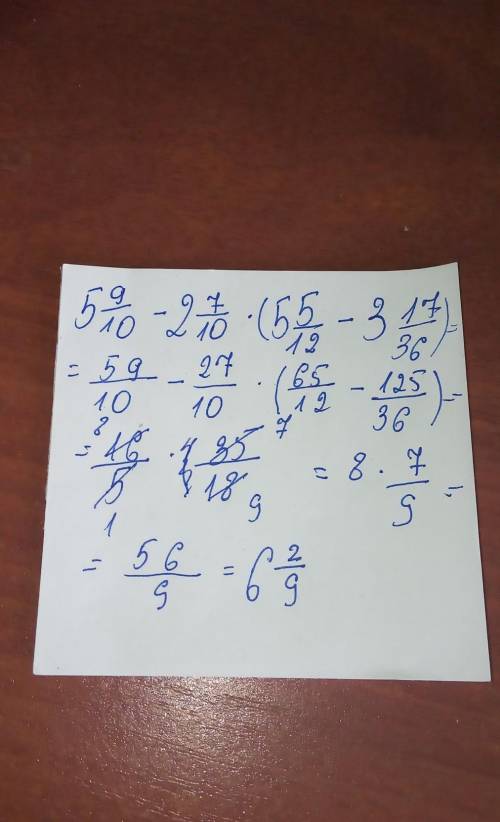 5 9/10 - 2 7/10 · (5 5/12 - 3 17/36) =
= 59/10 - 27/10 · (65/12 - 125/36) =
= 16/5 · 35/18 = 8 · 7/9 =
8 1 7 9
= 56/9 = 6 2/9